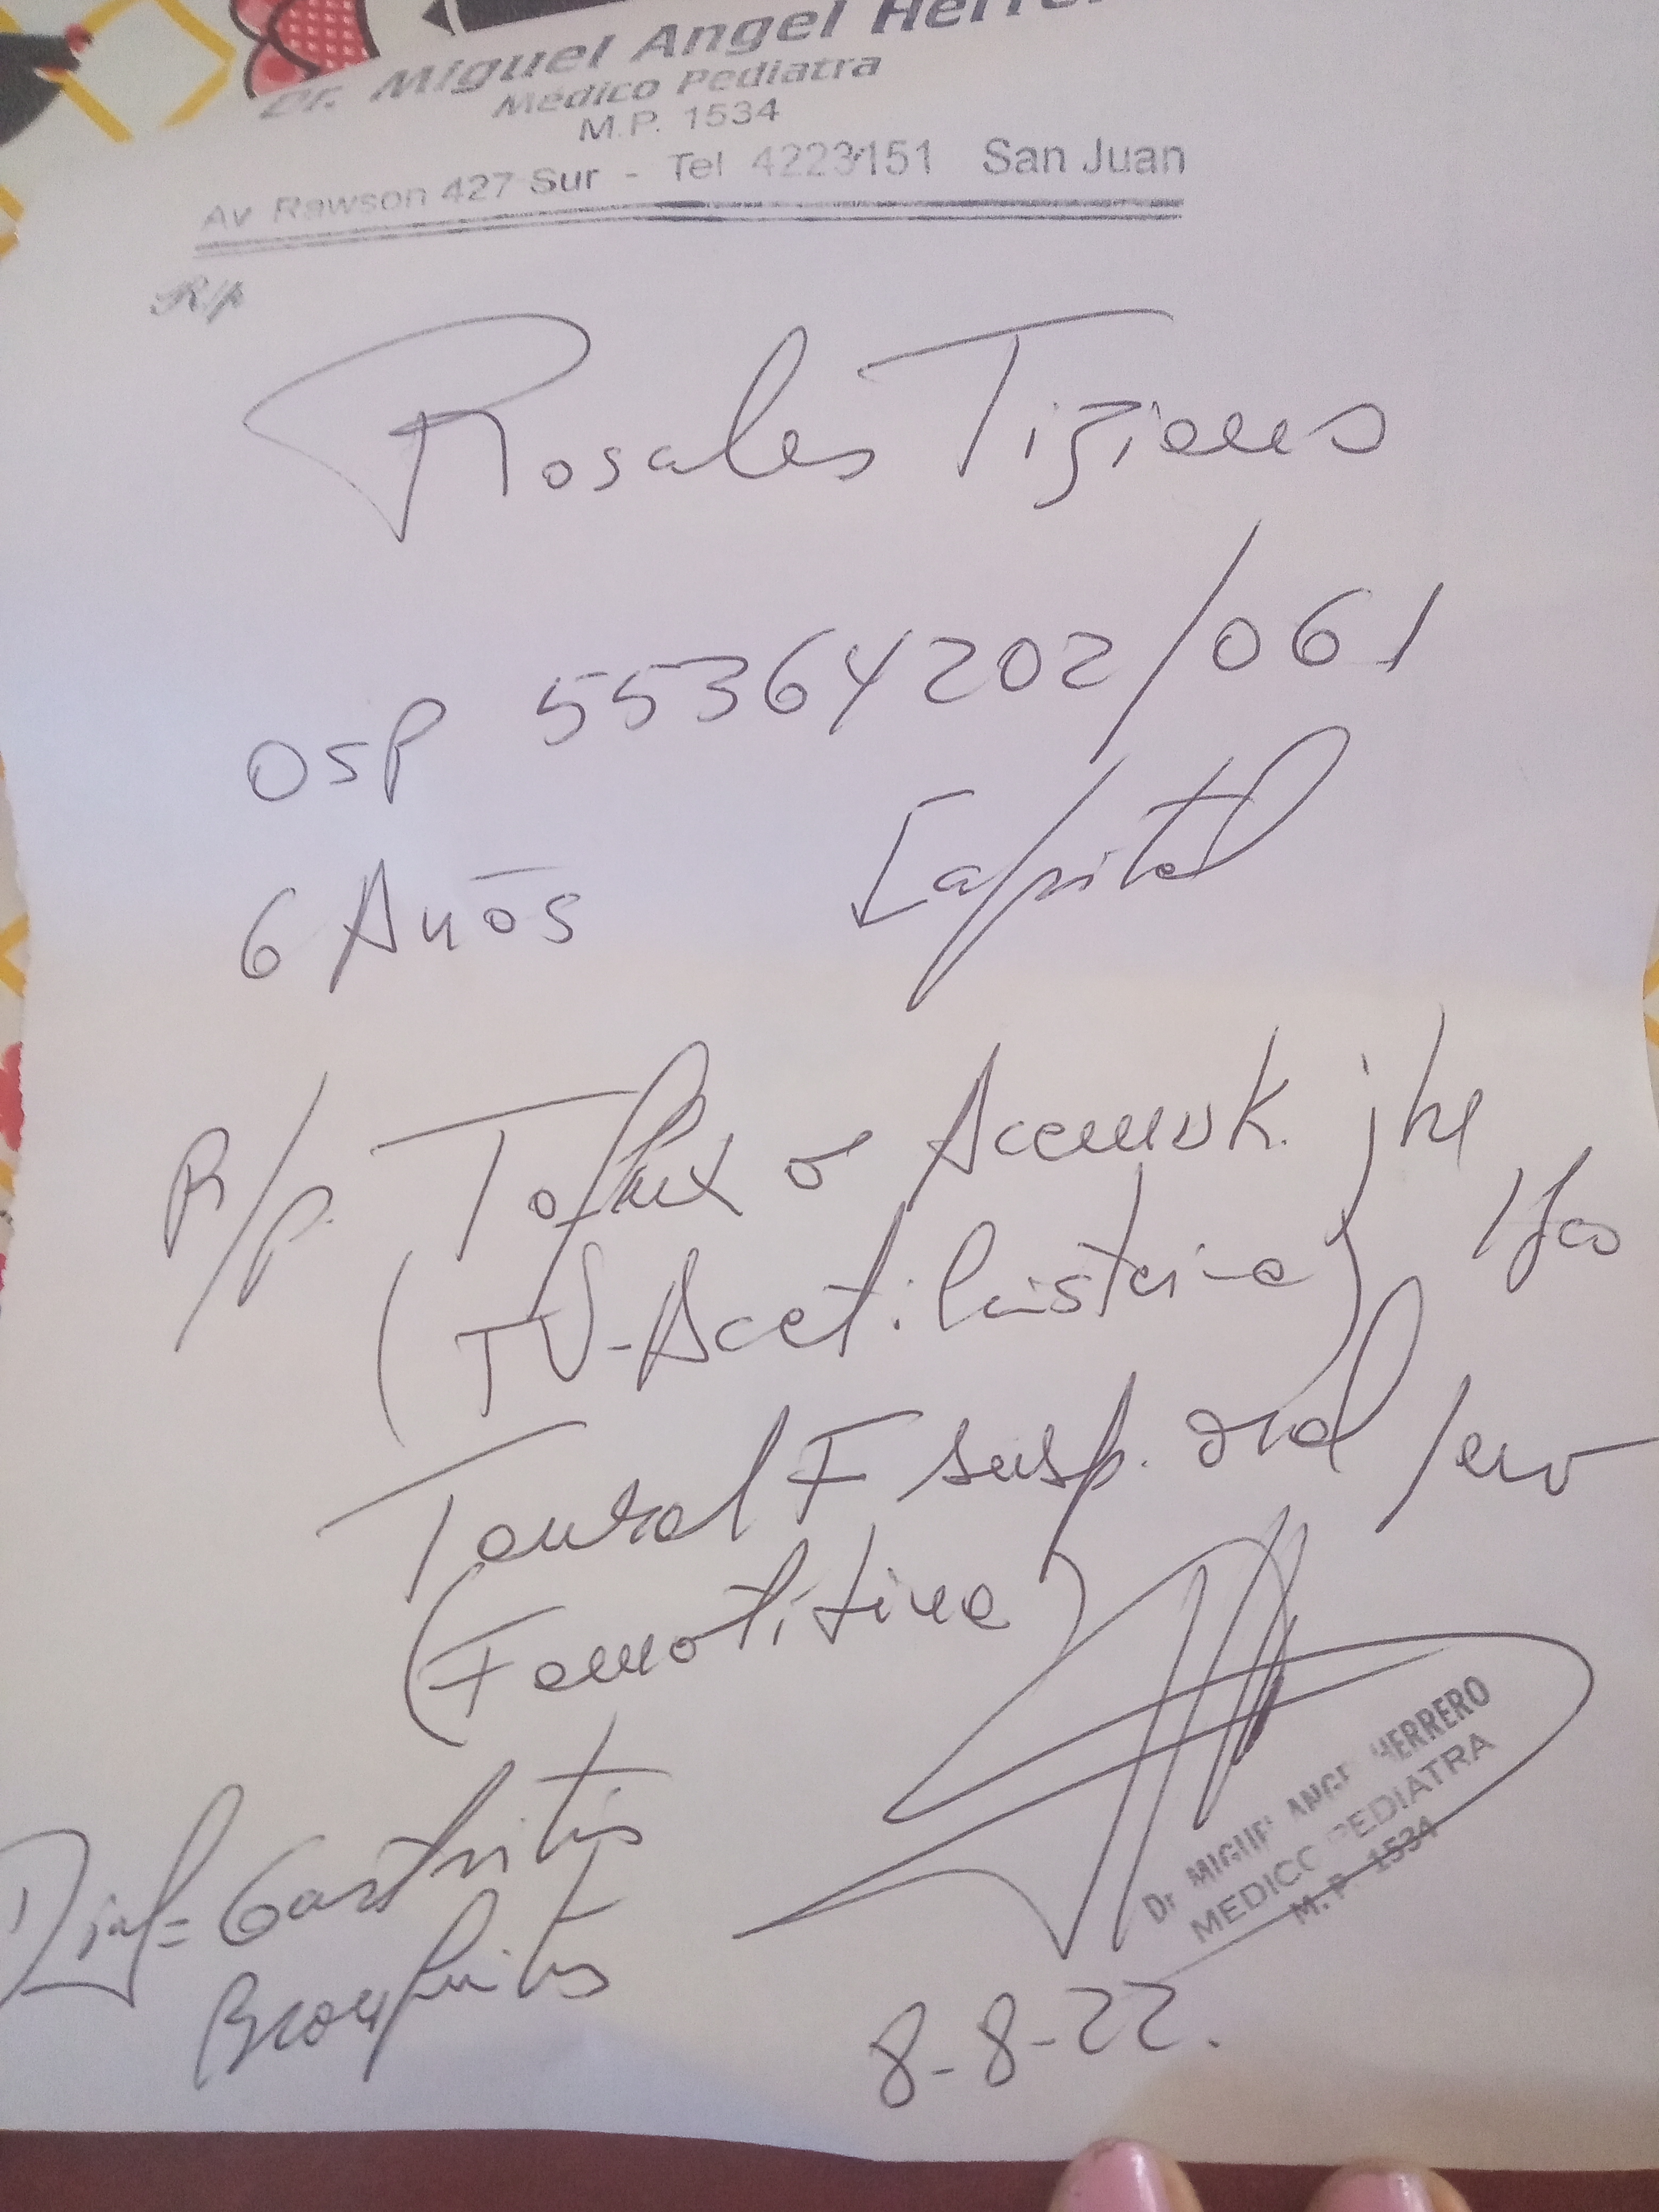 Dr. Miguel Angel Herre
Médico Pediatra
M.P. 1534
Av Rawson 427 Sur - Tel 4223151 San Juan
R/p
Rosales Tiziano
OSP 55364202/061
6 Años Capital
R/p. Toflux o Acemuk jbe
(N-Acetilcisteina) 1 fco
Taural F susp. oral 1 env
(Famotitina)
Diag= Gastritis
Bronquitis
Dr MIGUEL ANGEL HERRERO
MEDICO PEDIATRA
M.P. 1534
8-8-22.